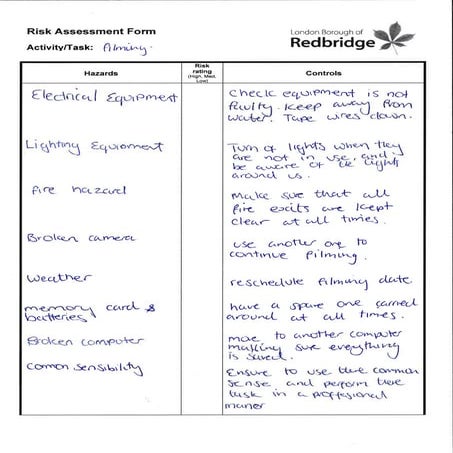 Risk Assessment Form
London Borough of
Redbridge
Activity/Task: filming.
Hazards
Risk
rating
(High, Med,
Low)
Controls
Electrical Equipment
Check equipment is not
faulty. Keep away from
water. Tape wires down.
Lighting Equipment
Turn of lights when they
are not in use, and
be aware of the lights
around us.
fire hazard
make sure that all
fire exits are kept
clear at all times.
Broken camera
use another one to
continue filming.
Weather
reschedule filming date.
memory card &
batteries
have a spare one carried
around at all times.
Broken computer
move to another computer
making sure everything
is saved.
common sensibility
Ensure to use there common
sense and perform there
task in a proffesional
maner